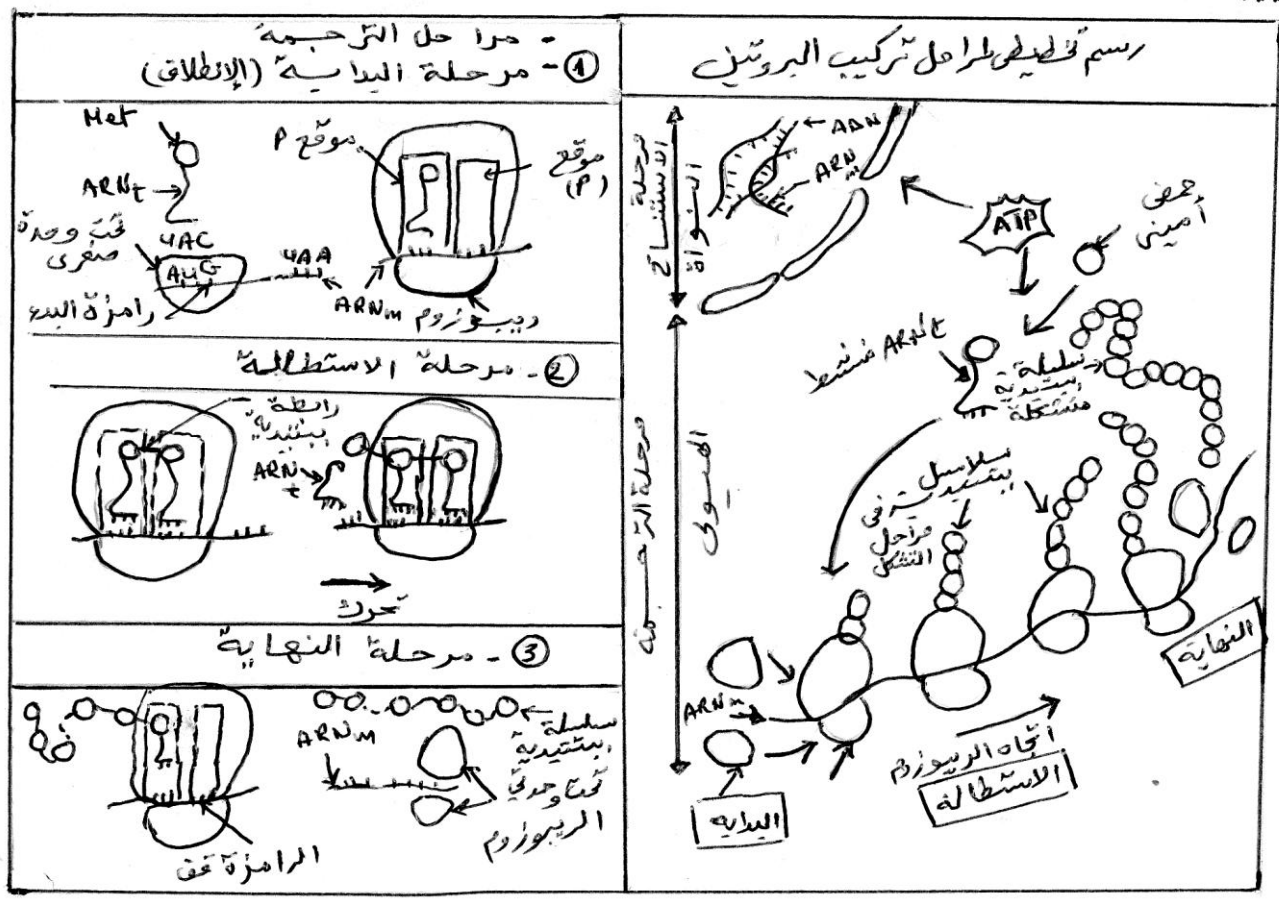 رسم تخطيطي لمراحل تركيب البروتين
مرحلة الاستنساخ
النواة
ADN
ARN
ATP
حمض
أميني
ARNt منشط
سلسلة
ببتيدية
متشكلة
مرحلة الترجمة
الهيولى
سلاسل
ببتيدية في
مراحل
التشكل
ARNm
البداية
اتجاه الريبوزوم
الاستطالة
النهاية
- مراحل الترجمة
① - مرحلة البداية (الإنطلاق)
Met
ARNt
تحت وحدة
صغرى
UAC
AUG
UAA
رامزة البدء
ARNm
موقع P
موقع
(P)
ريبوزوم
② - مرحلة الاستطالة
رابطة
ببتيدية
ARNt
تحرك
③ - مرحلة النهاية
ARNm
سلسلة
ببتيدية
تحت وحدتي
الريبوزوم
الرامزة قف